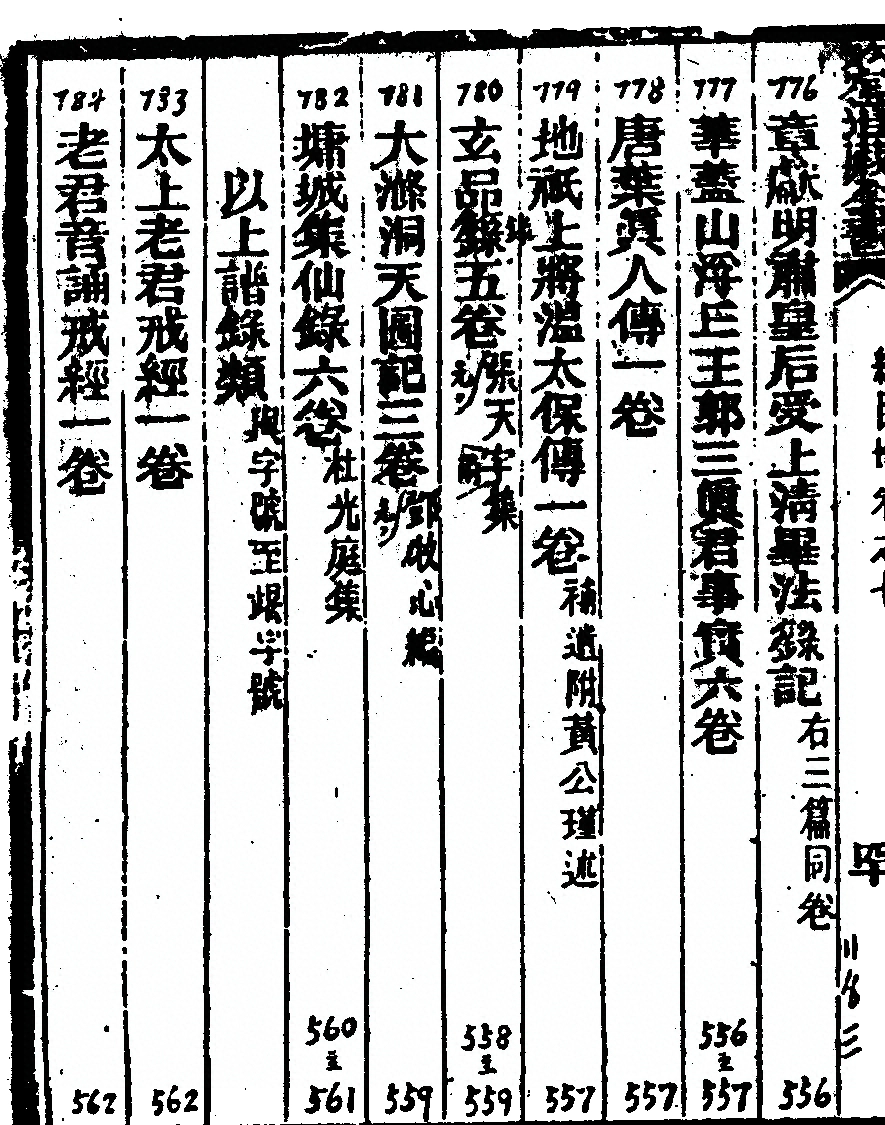 776 章獻明肅皇后受上清畢法籙記 右三篇同卷 556
777 華蓋山浮丘王郭三眞君事實六卷 556至557
778 唐葉眞人傳一卷 557
779 地祇上將溫太保傳一卷 補遺附黃公瑾述 557
780 玄品籙五卷 錄 張天宇集 元 雨 558至559
781 大滌洞天圖記三卷 鄧牧心編 元 559
782 墉城集仙錄六卷 杜光庭集 560至561
以上譜錄類 字號至 字號
783 太上老君戒經一卷 562
784 老君音誦戒經一卷 562